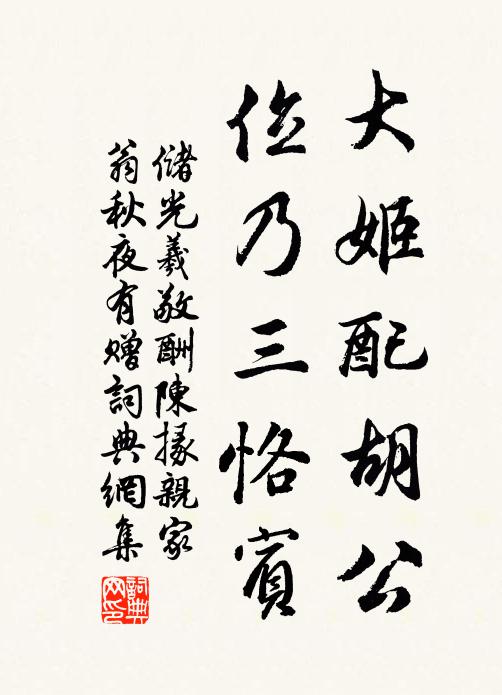 大姬配胡公
位乃三恪賓
儲光羲敬酬陳掾親家
翁秋夜有贈詞典網集
詞典
网印